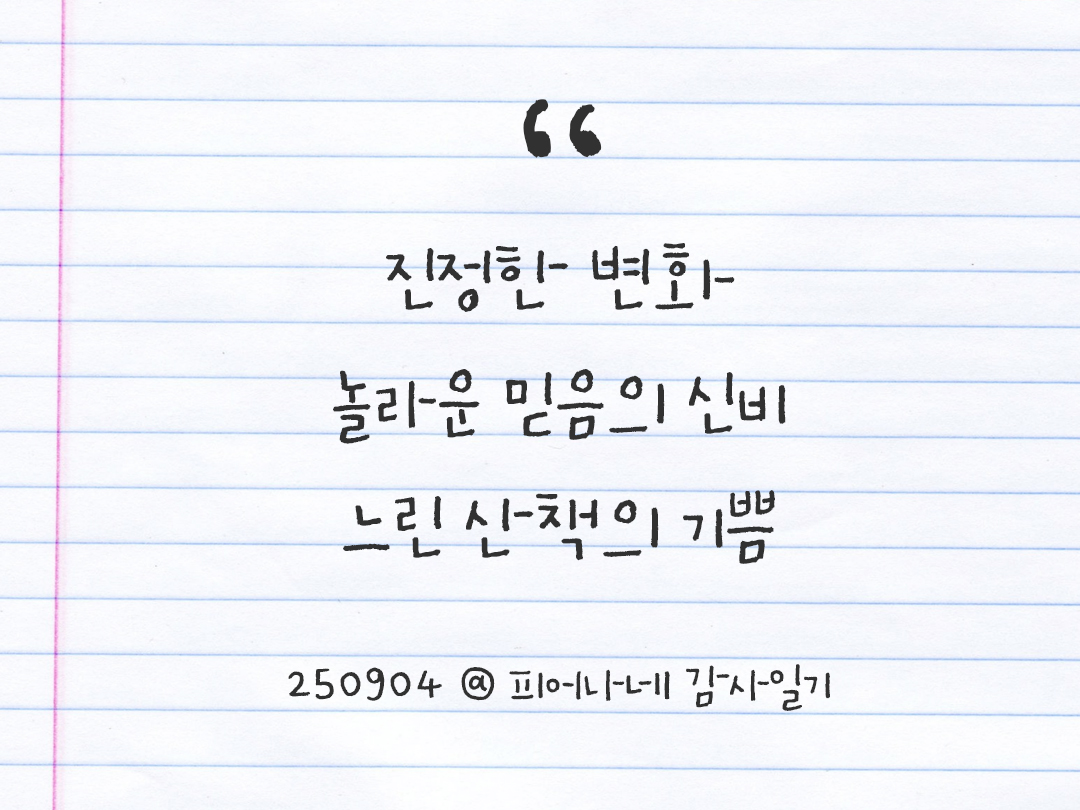 “
진정한 변화
놀라운 믿음의 신비
느린 산책의 기쁨
250904 @ 피어나네 감사일기